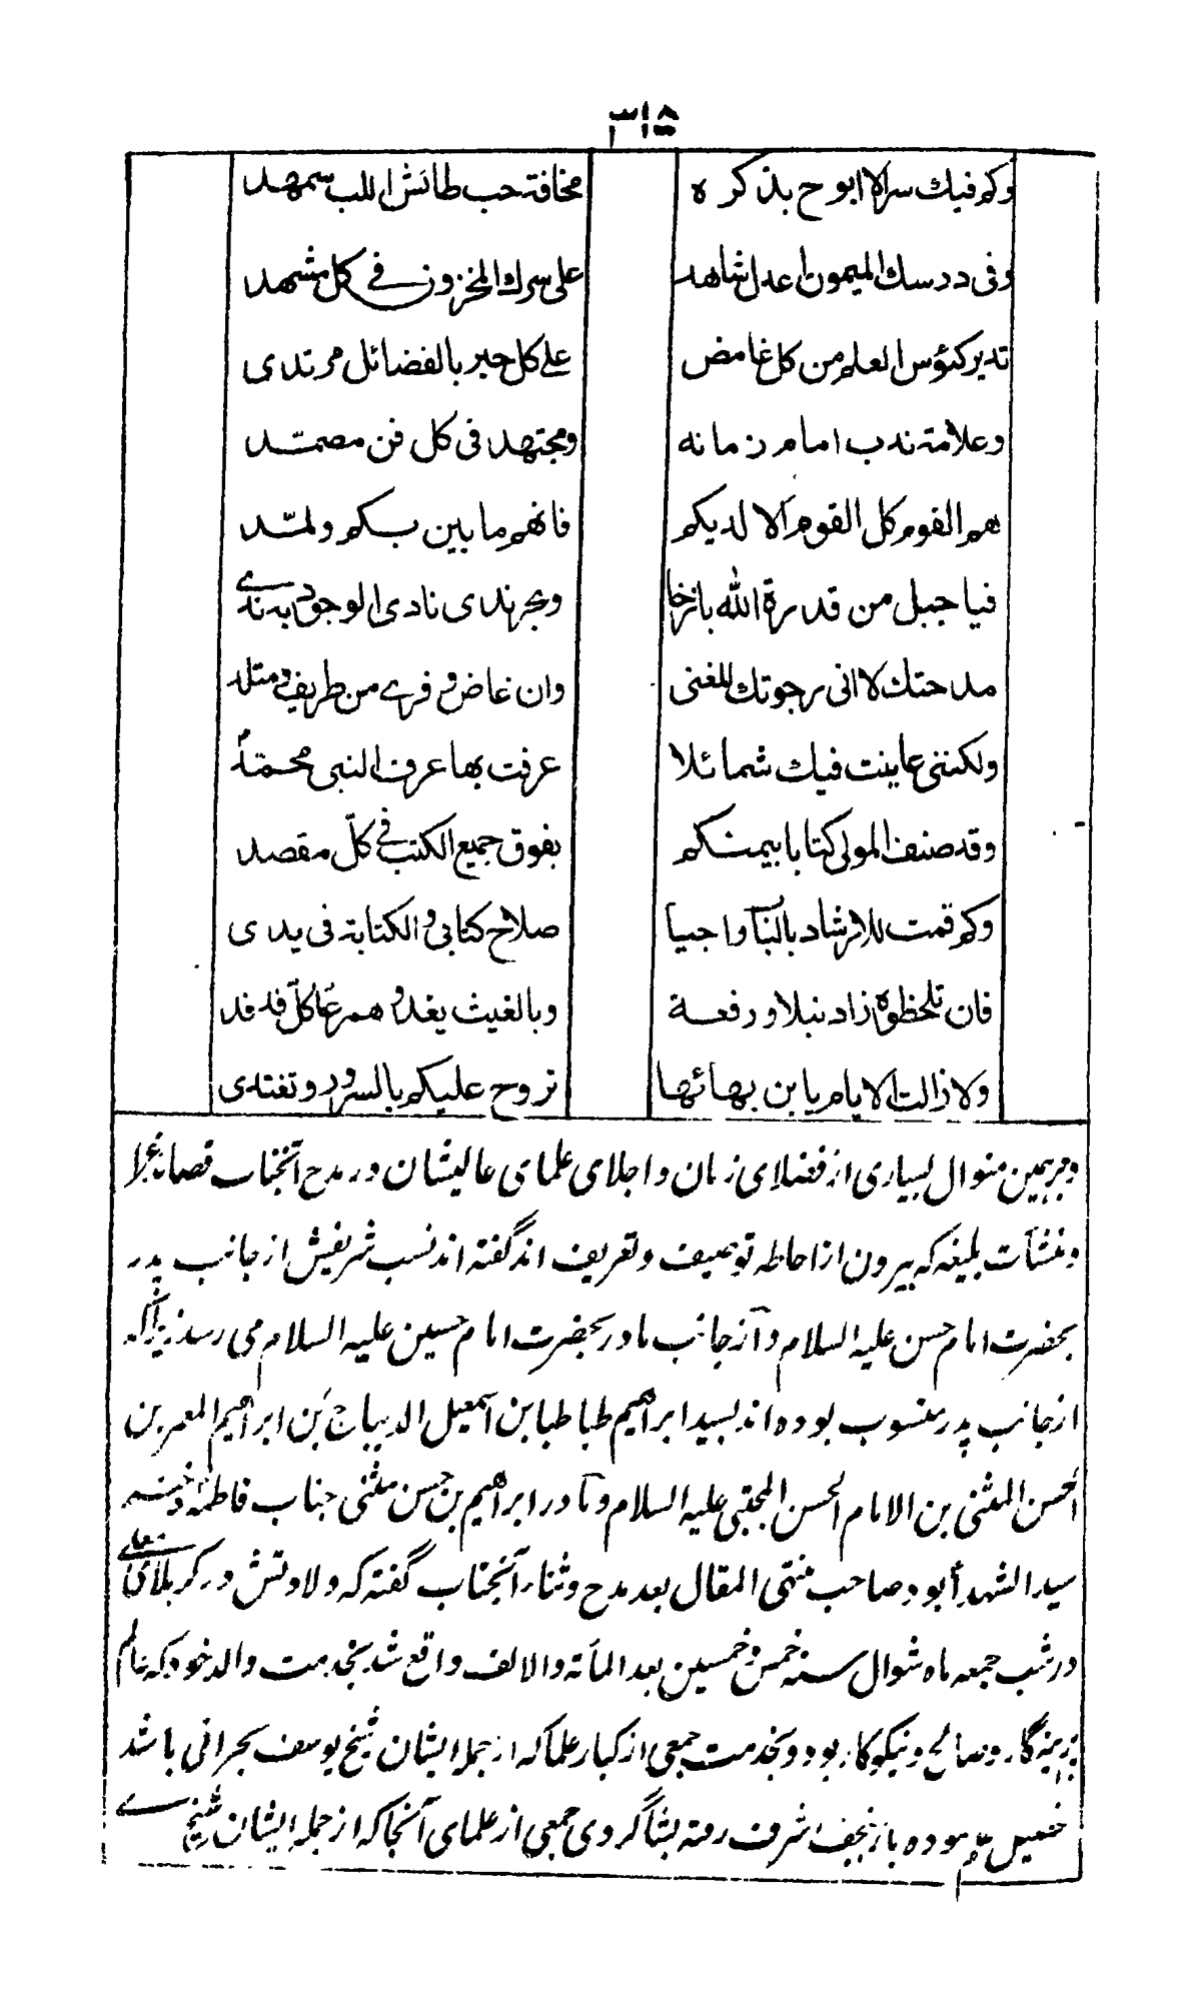 ٣١٥
وكم فيك سر لا ابوح بذكره مخافة حب طائش اللب سمهد
وفى درسك الميمون اعدل شاهد على سرك المخزون فے كل مشهد
تدير كئوس العلم من كل غامض علے كل حبر بالفضائل مرتدى
وعلامة ندب امام زمانه ومجتهد فى كل فن مصمّد
هم القوم كل القوم الا لديكم فانهم ما بين بكم ولمّد
فيا جبل من قدرة الله باذخا وبحر ندى نادى الوجود به ندے
مدحتك لا انى رجوتك للغنى وان غاض وفرے من طريف ومتلد
ولكننى عاينت فيك شمائلا عرفت بها عرف النبى محمّد
وقد صنف المولى كتابا بيمنكم يفوق جميع الكتب فے كلّ مقصد
وكم قمت للارشاد بالبآ واجبا صلاح كتابى والكتابة فى يدى
فان تلحظوه زاد نبلا ورفعة وبالغيث يغدو همر عا كلّ فدفد
ولا زالت الايام يا بن بهائها تروح عليكم بالسرور وتغتدى
وبرهمین منوال بسیاری از فضلای زمان و اجلای علمای عالیشان در مدح آنجناب قصاید غرا
و منشآت بلیغه که بیرون از احاطه توصیف و تعریف اند گفته اند نسب شریفش از جانب پدر
بحضرت امام حسن علیه السلام و از جانب مادر بحضرت امام حسین علیه السلام می رسد زیراکه
از جانب پدر منسوب بوده اند بسید ابراهیم طباطبا بن اسمعیل الدیباج بن ابراهیم المعمر بن
الحسن المثنی بن الامام الحسن المجتبی علیه السلام و مادر ابراهیم بن حسن مثنی جناب فاطمه دختر
سید الشهدا بود صاحب منتهی المقال بعد مدح و ثناء آنجناب گفته که ولادتش در کربلای معلے
در شب جمعه ماه شوال سنه خمس و خمسین بعد المأة والالف واقع شد بخدمت والد خود که عالم
پرهیزگار و صالح و نیکوکار بود و بخدمت جمعی از کبار علما که از جمله ایشان شیخ یوسف بحرانی باشد
تحصیل نموده باز بنجف اشرف رفته بشاگردی جمعی از علمای آنجا که از جمله ایشان شیخ